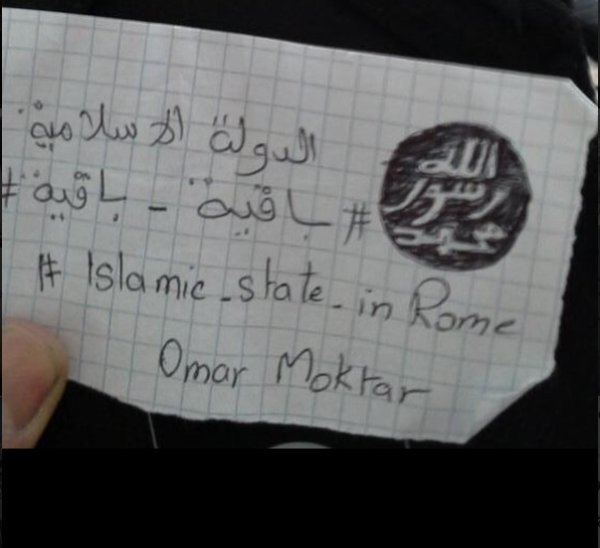 الدولة الاسلامية
#باقية - باقية#
# Islamic_state_in Rome
Omar Moktar
الله
رسول
محمد